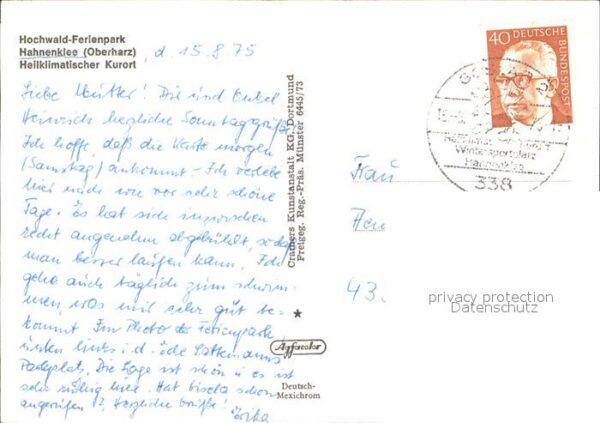 Hochwald-Ferienpark
Hahnenklee (Oberharz)
Heilklimatischer Kurort
, d. 15.8.75
Liebe Mutter! Dir und Onkel
Heinrich herzliche Sonntagsgrüße.
Ich hoffe, daß die Karte morgen
(Samstag) ankommt. Ich verlebe
hier nach wie vor sehr schöne
Tage. Es hat sich inzwischen
recht angenehm abgekühlt, so daß
man besser laufen kann. Ich
gehe auch täglich zum schwim-
men, was mir sehr gut be-
kommt. Im Photo der Ferienpark,
unten links i. d. Ecke
Parkplatz. Die Lage ist schön u. es ist
sehr ruhig hier. Hat Gisela schon
angerufen? Herzliche Grüße! Erika
Cramers Kunstanstalt KG, Dortmund
Freigeg. Reg.-Präs. Münster 6445/73
Agfacolor
Deutsch-
Mexichrom
40 DEUTSCHE
BUNDESPOST
Wintersportplatz
Hahnenklee
338
Frau
43.
privacy protection
Datenschutz